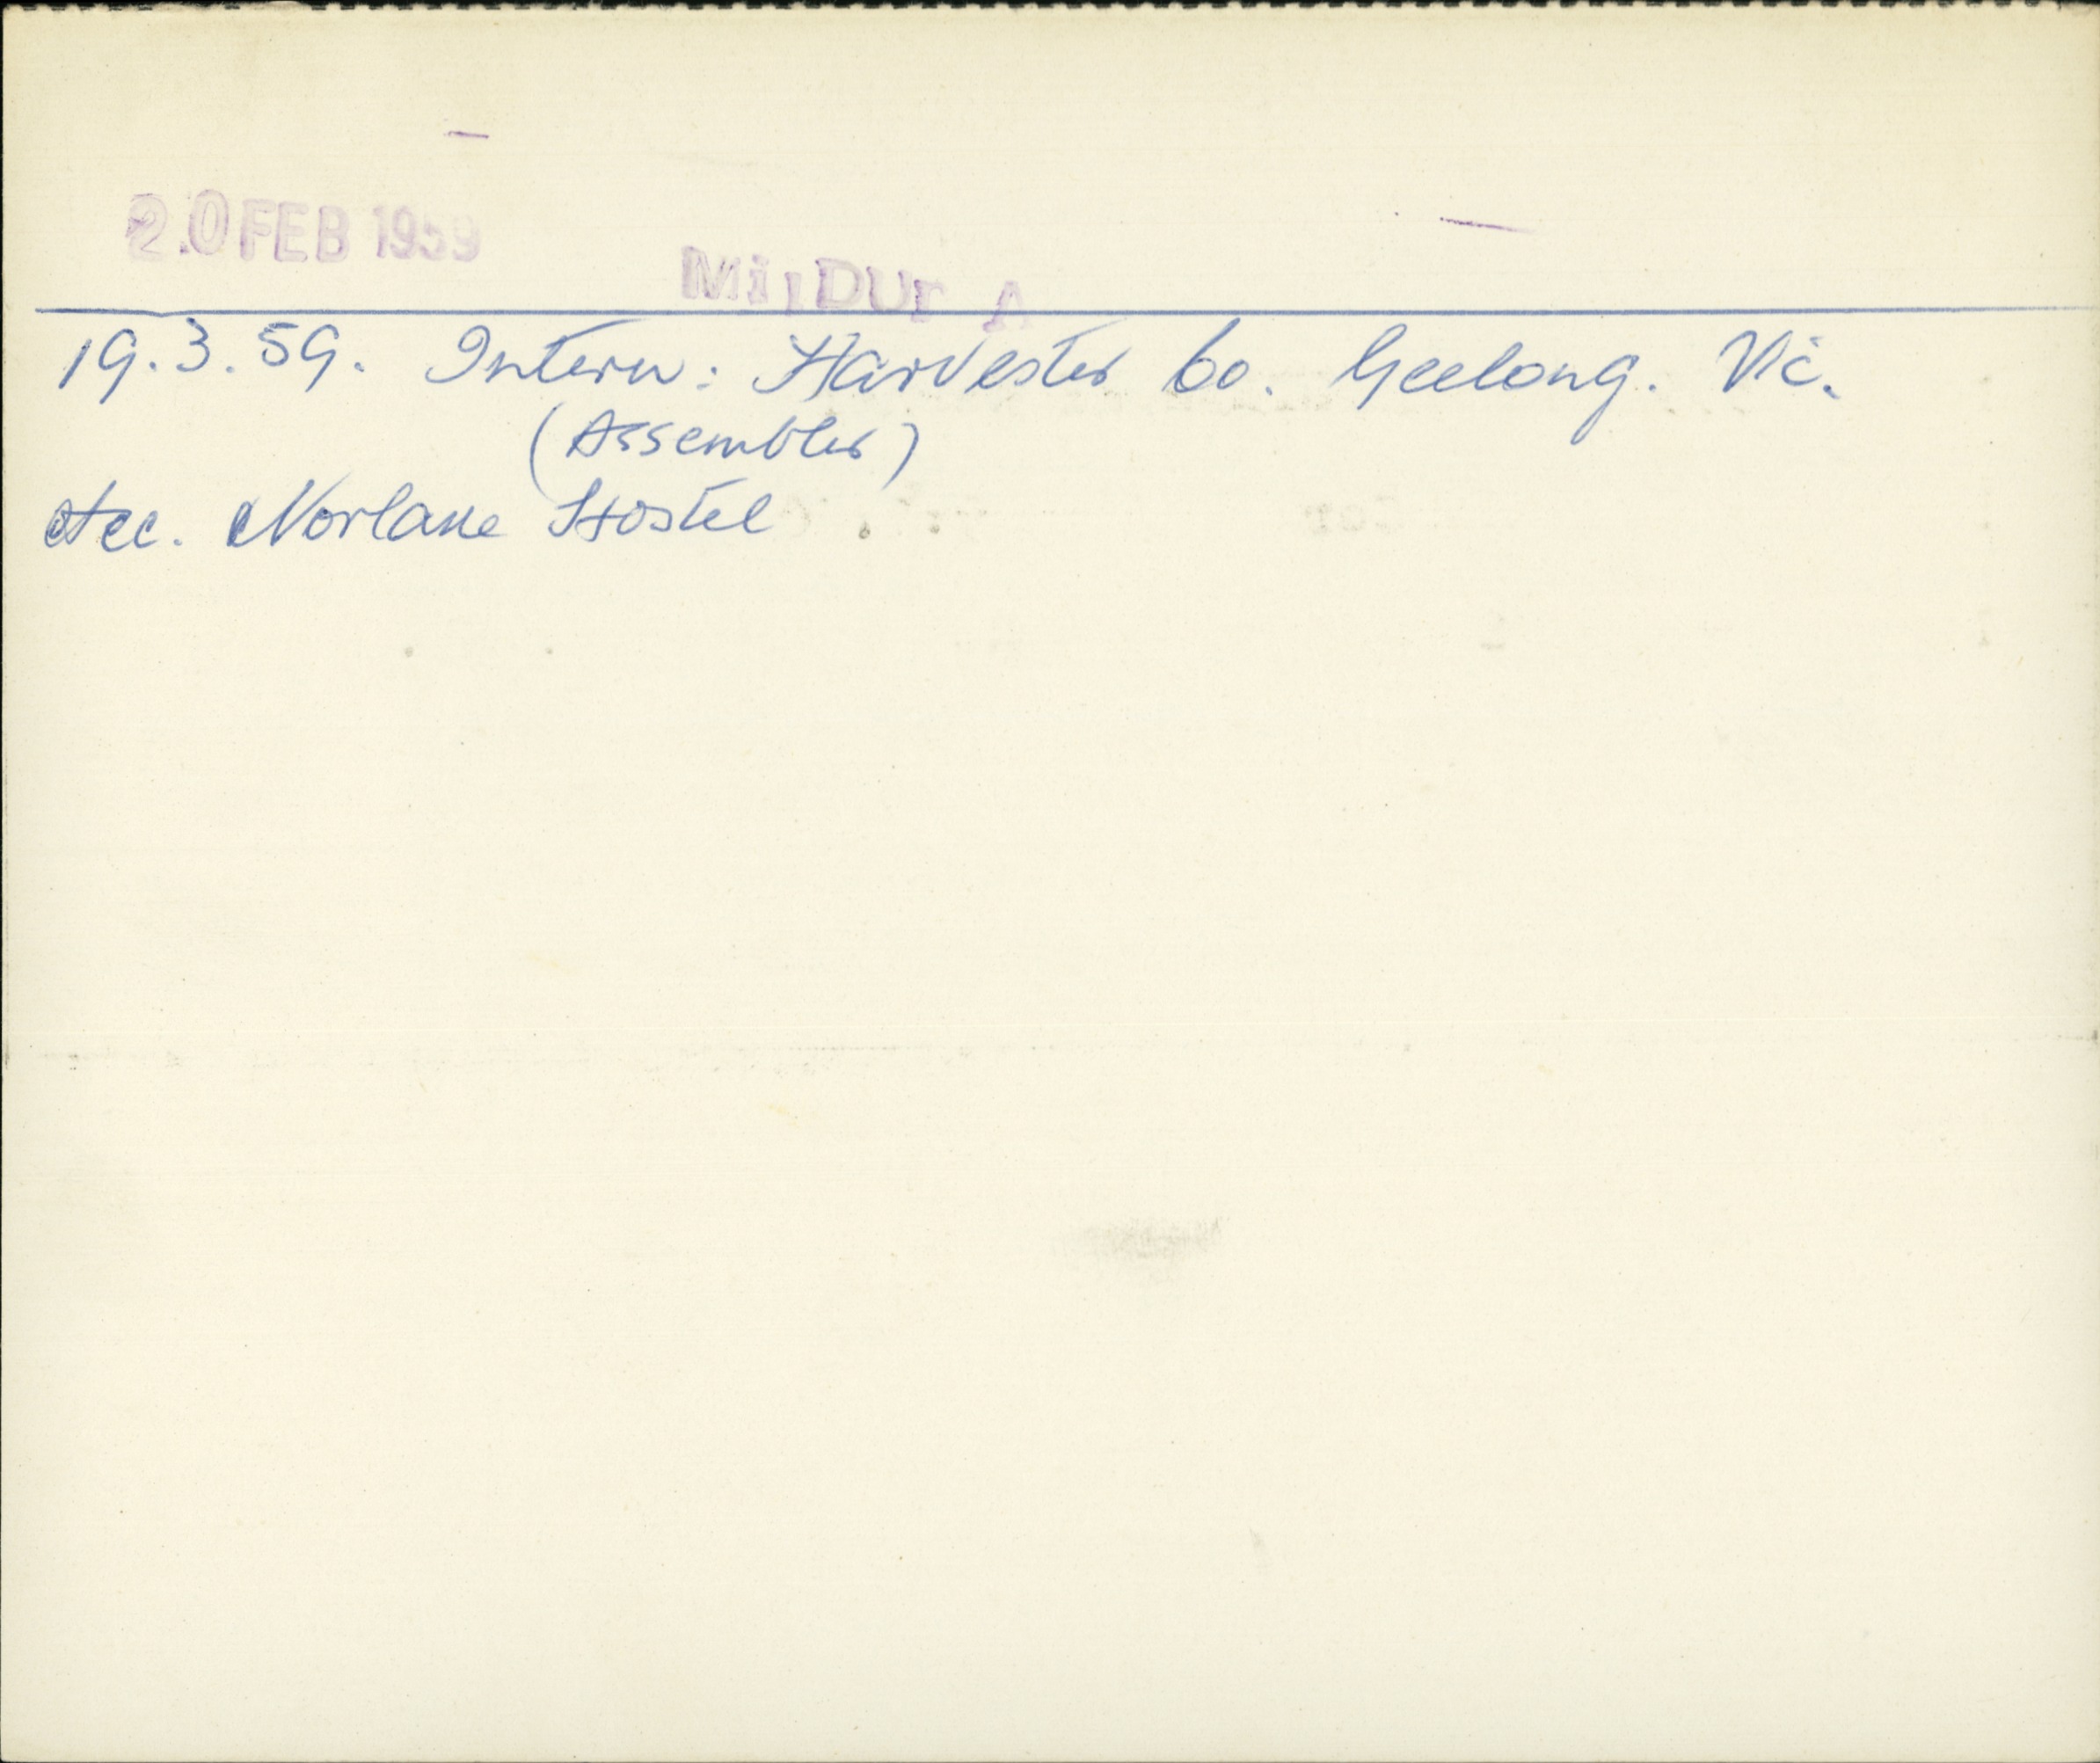 20 FEB 1959
MilDUr A
19.3.59. Intern: Harvester Co. Geelong. Vic.
(Assembler)
Acc. Norlane Hostel